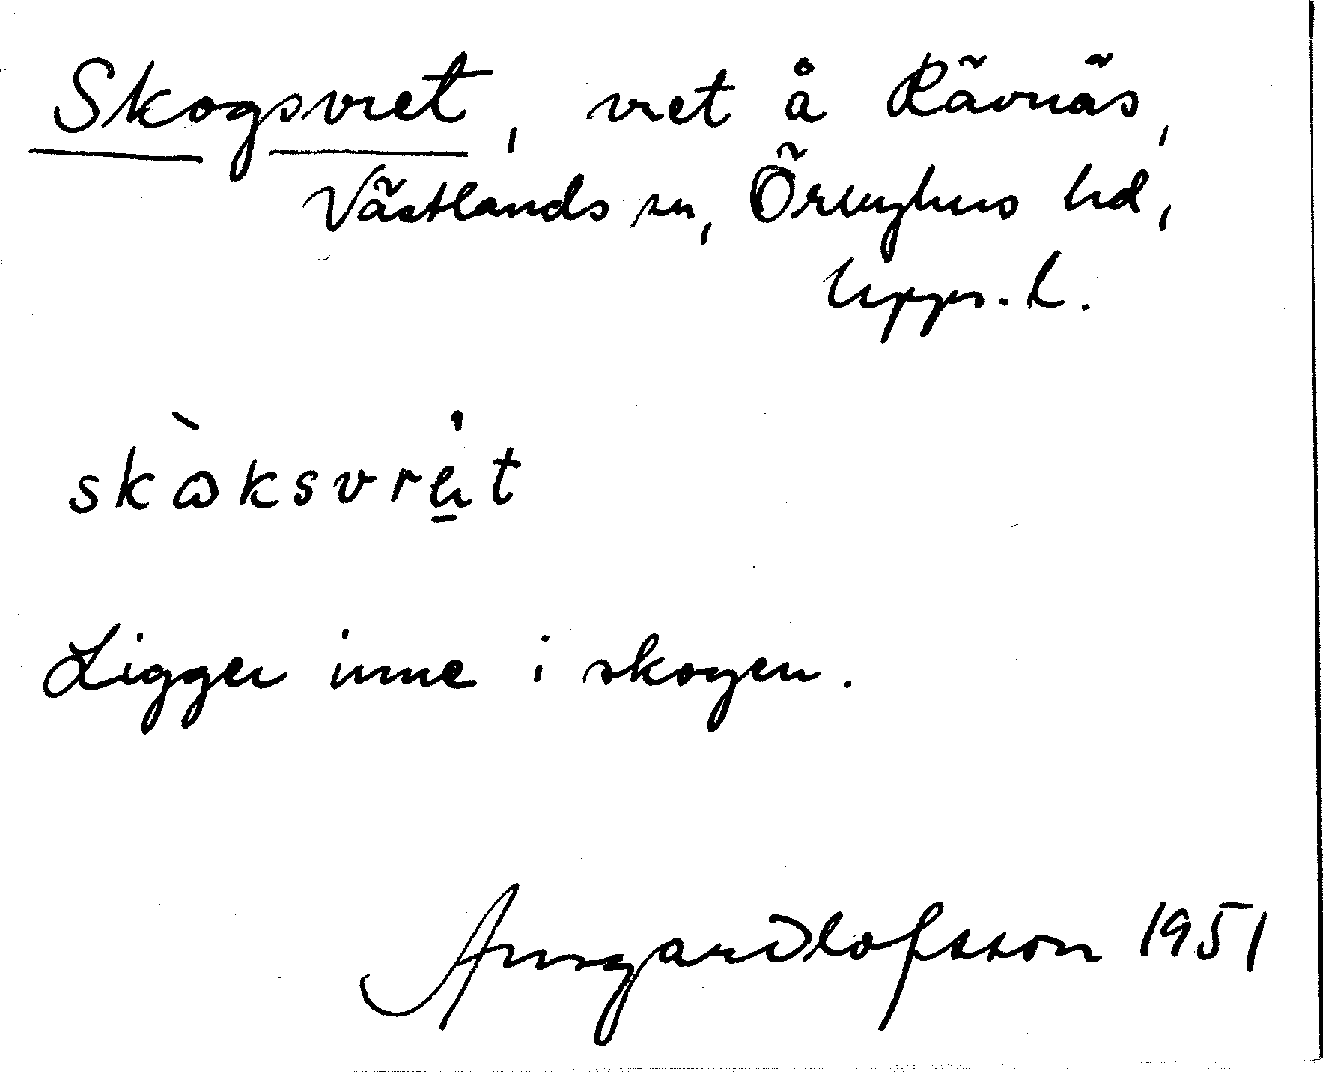 Skogsvret, vret å Rävnäs,
Västlands sn, Örbyhus hd,
Upps. l.
Ligger inne i skogen.
Ansgar Olofsson 1951